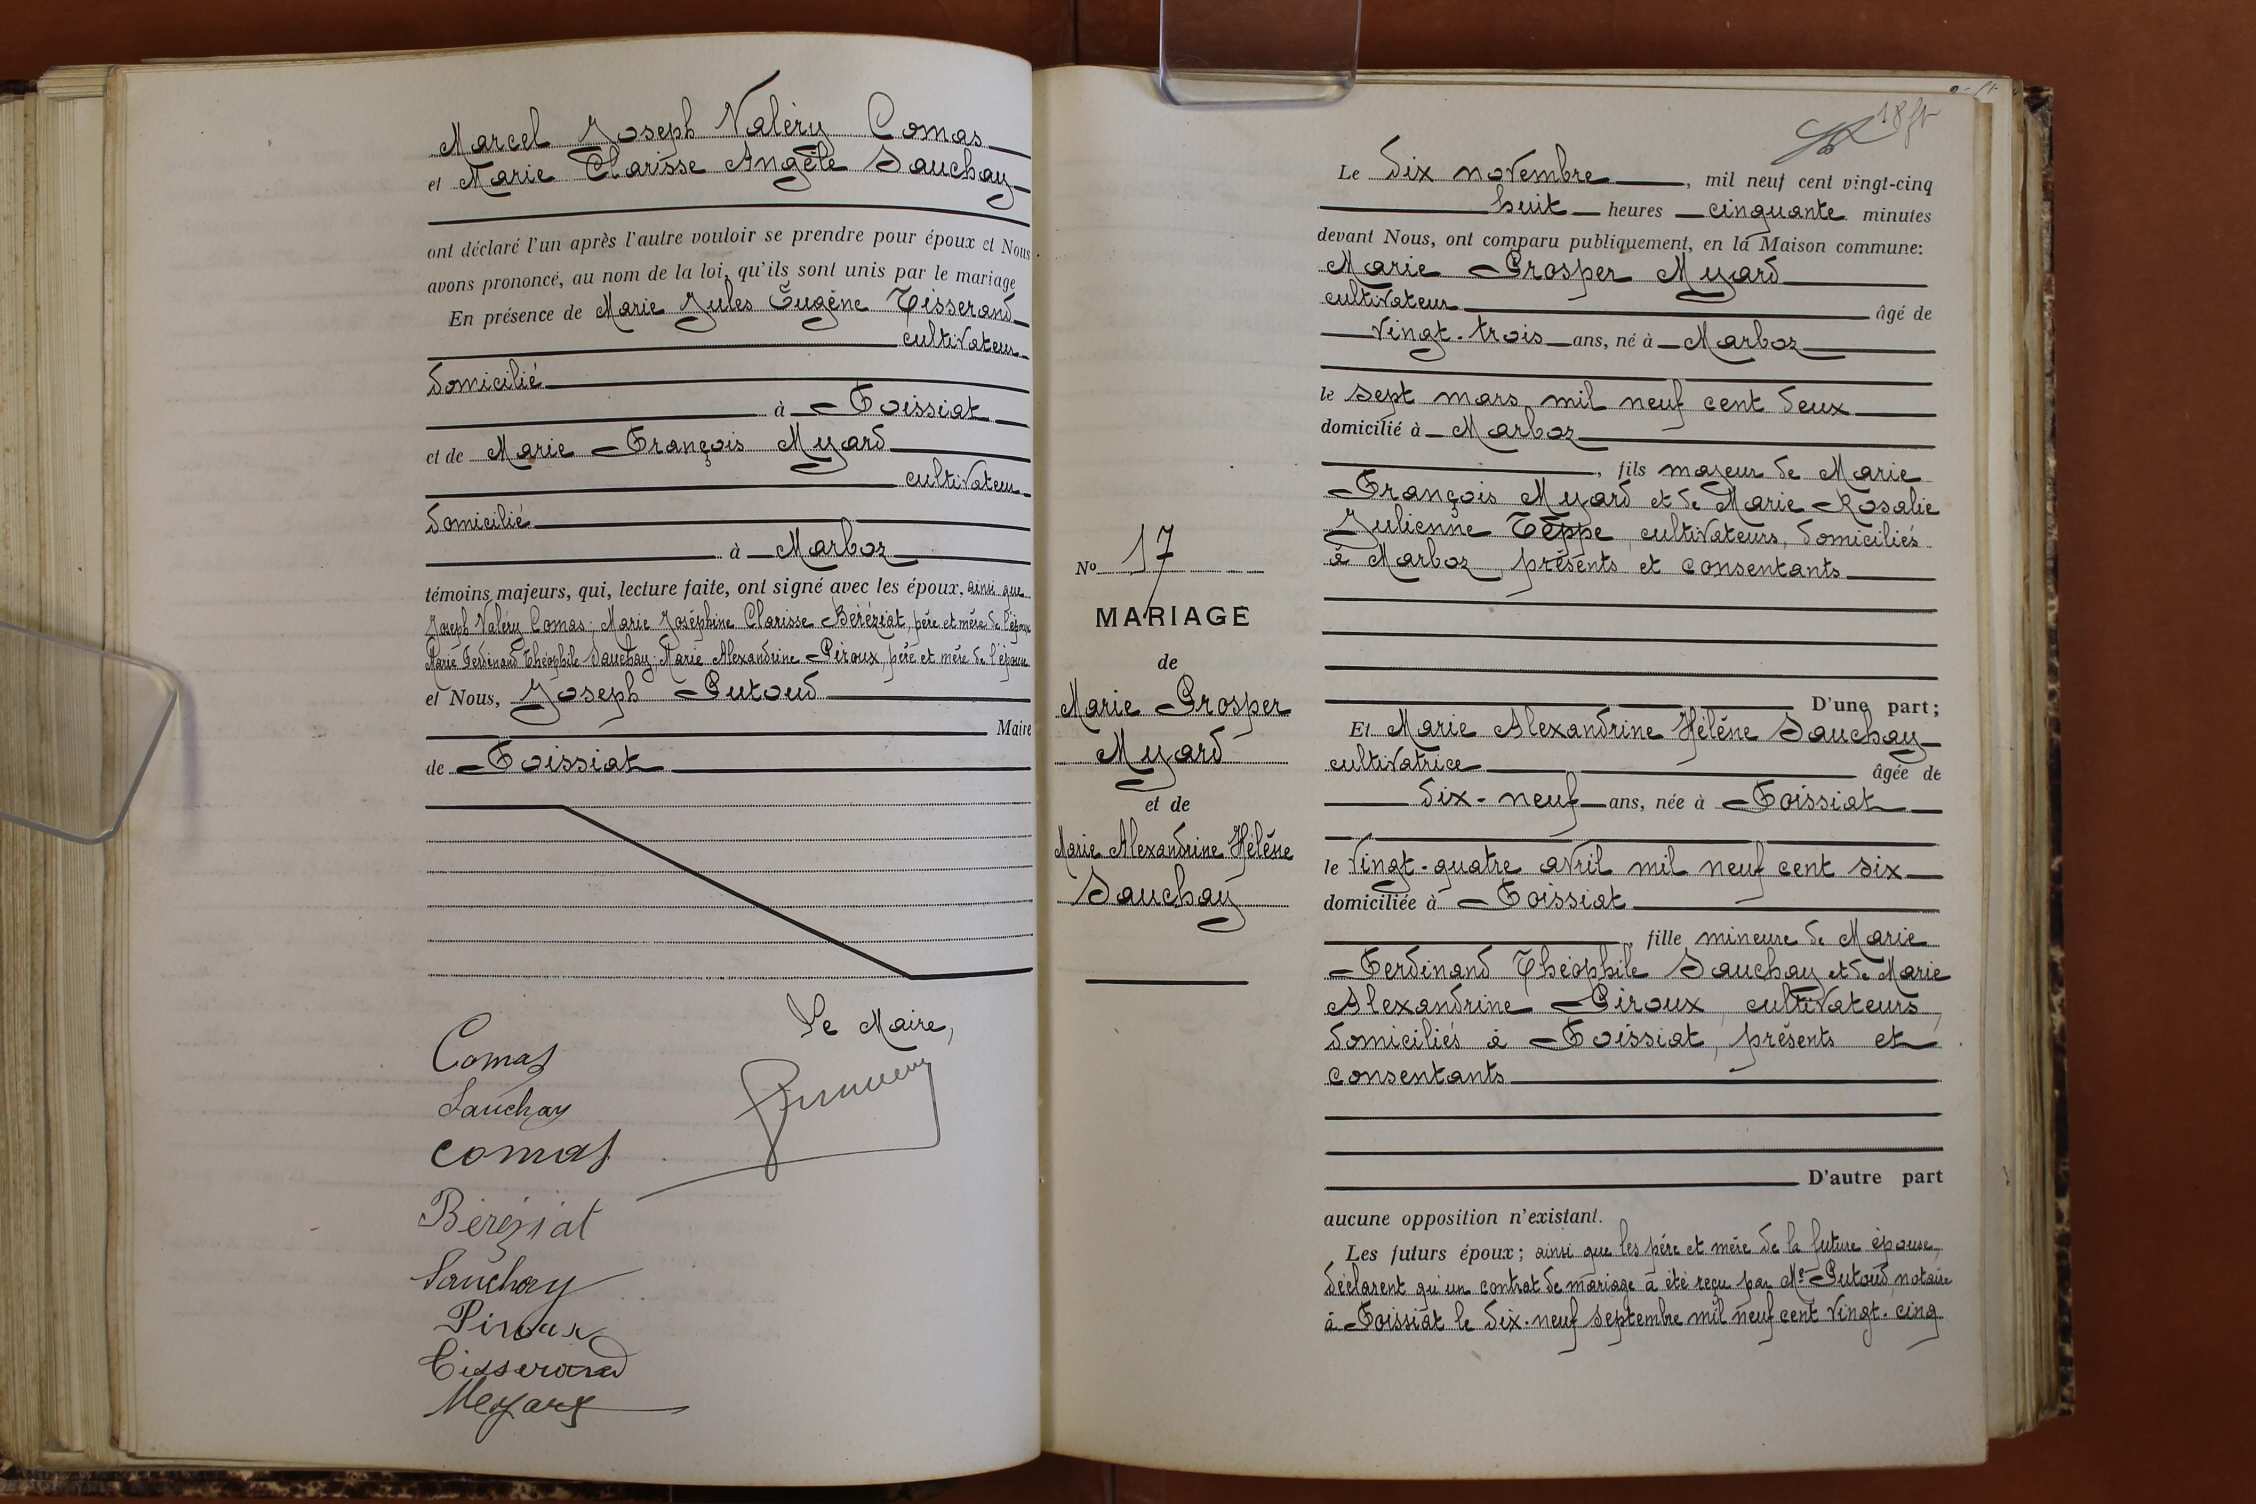 Marcel Joseph Valéry Comas
et Marie Clarisse Angèle Sauchay
ont déclaré l'un après l'autre vouloir se prendre pour époux et Nous
avons prononcé, au nom de la loi, qu'ils sont unis par le mariage
En présence de Marie Jules Eugène Tisserand
cultivateur
domicilié
à Foissiat
et de Marie François Myard
cultivateur
domicilié
à Marboz
témoins majeurs, qui, lecture faite, ont signé avec les époux, ainsi que
Joseph Valéry Comas; Marie Joséphine Clarisse Béréziat, père et mère de l'époux
Marie Ferdinand Théophile Sauchay; Marie Alexandrine Piroux, père et mère de l'épouse
et Nous, Joseph Putoud
Maire
de Foissiat
Le Maire,
Comas
Sauchay
Comas
Béréziat
Sauchay
Piroux
Tisserand
Myard
N° 17
MARIAGE
de
Marie Prosper
Myard
et de
Marie Alexandrine Hélène
Sauchay
Le dix novembre, mil neuf cent vingt-cinq
huit heures cinquante minutes
devant Nous, ont comparu publiquement, en la Maison commune:
Marie Prosper Myard
cultivateur âgé de
vingt-trois ans, né à Marboz
le sept mars mil neuf cent deux
domicilié à Marboz
, fils majeur de Marie
François Myard et de Marie Rosalie
Julienne Teppe, cultivateurs, domiciliés
à Marboz, présents et consentants
D'une part;
Et Marie Alexandrine Hélène Sauchay
cultivatrice âgée de
dix-neuf ans, née à Foissiat
le vingt-quatre avril mil neuf cent six
domiciliée à Foissiat
, fille mineure de Marie
Ferdinand Théophile Sauchay et de Marie
Alexandrine Piroux, cultivateurs,
domiciliés à Foissiat, présents et
consentants
D'autre part
aucune opposition n'existant.
Les futurs époux; ainsi que les père et mère de la future épouse,
déclarent qu'un contrat de mariage a été reçu par Me Putoud, notaire
à Foissiat le dix-neuf septembre mil neuf cent vingt-cinq